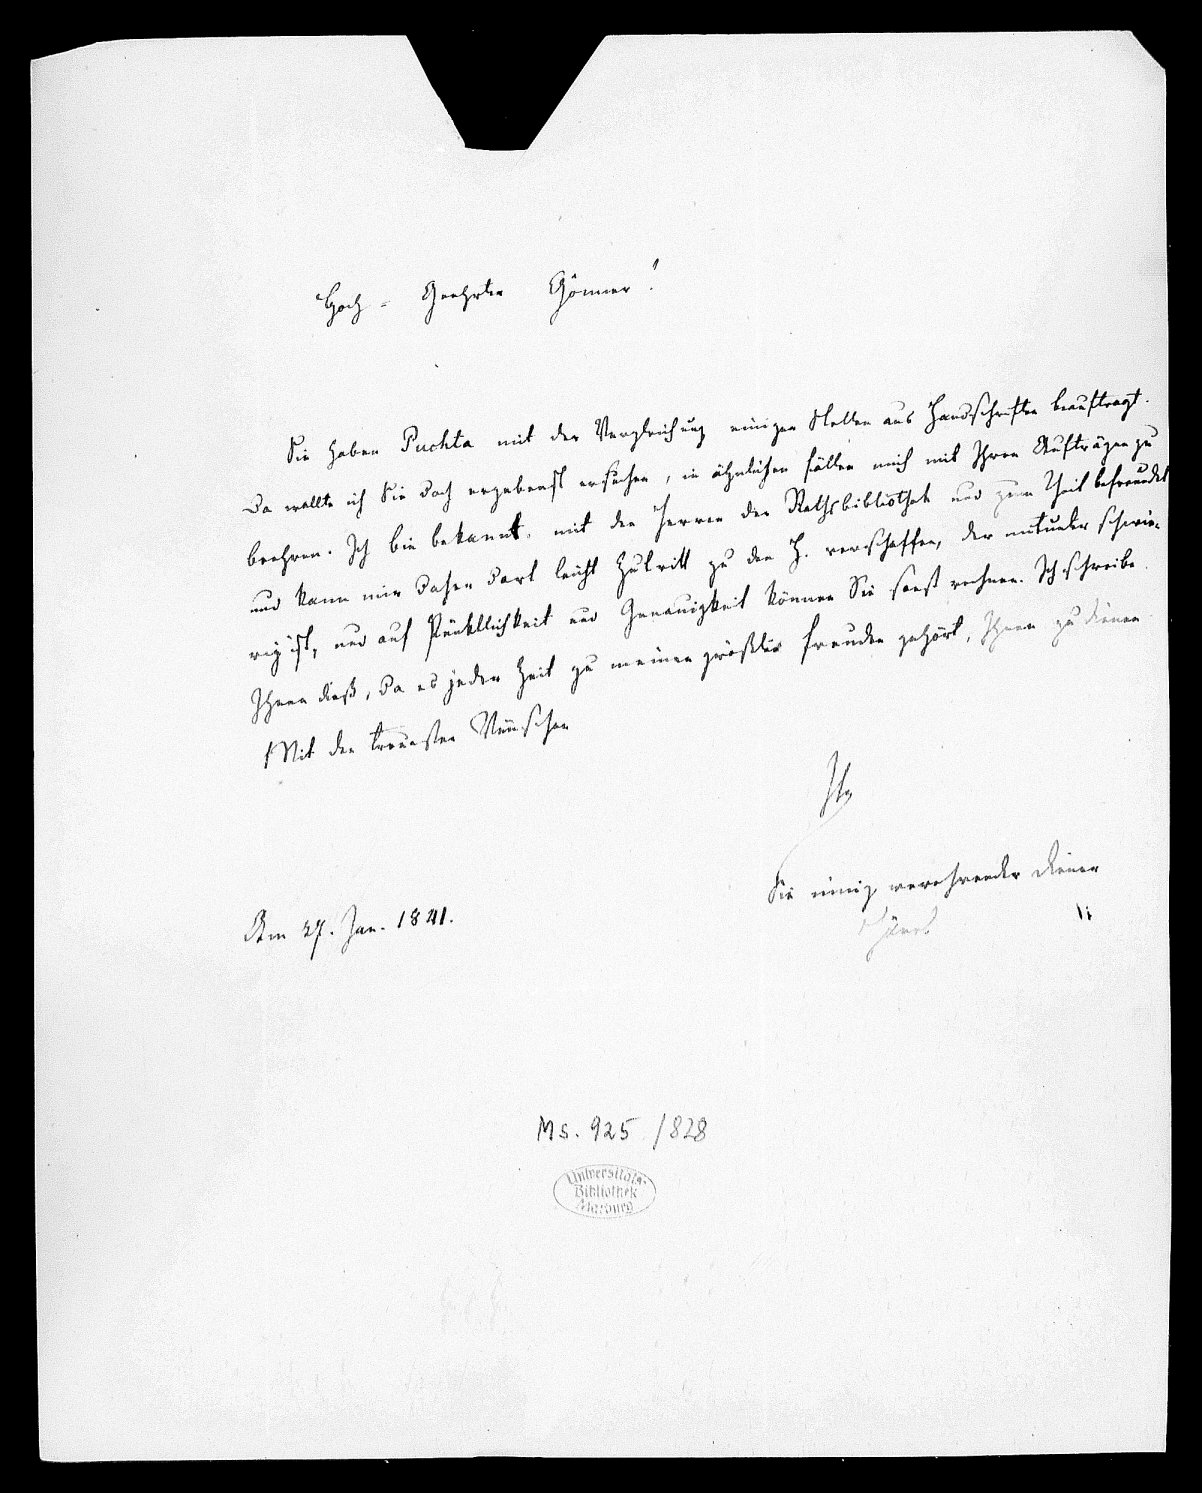 Hoch-Geehrter Gönner!
Sie haben Puchta mit der Vergleichung einiger Stellen aus Handschriften beauftragt.
Da wollte ich Sie doch ergebenst ersuchen, in ähnlichen Fällen mich mit Ihren Aufträgen zu
beehren. Ich bin bekannt, mit den Herren der Rathsbibliothek und zum Theil befreundet
und kann mir daher dort leicht Zutritt zu den H. verschaffen, der mitunter schwie-
rig ist, und auf Pünktlichkeit und Genauigkeit können Sie sonst rechnen. Ich schreibe
Ihnen dieß, da es jeder Zeit zu meinen größten Freuden gehört, Ihnen zu dienen.
Mit den treuesten Wünschen
Ihr
Sie innig verehrender Diener
Am 27. Jan. 1841.
Ms. 925/828
Universitäts-
Bibliothek
Marburg